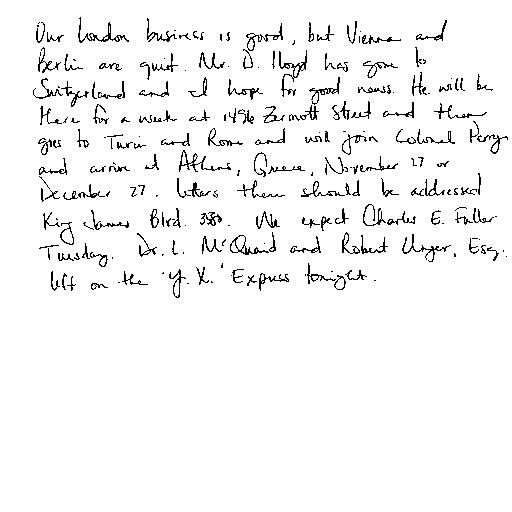 Our London business is good, but Vienna and
Berlin are quiet. Mr. D. Lloyd has gone to
Switzerland and I hope for good news. He will be
there for a week at 1496 Zermott Street and then
goes to Turin and Rome and will join Colonel Perry
and arrive at Athens, Greece, November 27 or
December 27. Letters there should be addressed
King James Blvd. 3580. We expect Charles E. Fuller
Tuesday. Dr. L. McQuaid and Robert Unger, Esq.
left on the 'Y. X.' Express tonight.